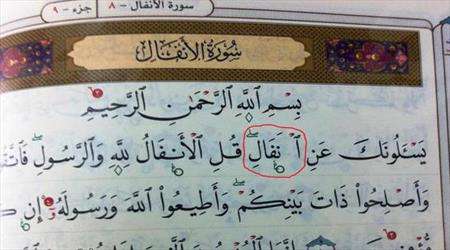 سورة الأنفال - ٨ جزء - ٩
سُورَةُ الأَنفَالِ
بِسْمِ ٱللَّهِ ٱلرَّحْمَٰنِ ٱلرَّحِيمِ
يَسْـَٔلُونَكَ عَنِ ٱ نفَالِ ۖ قُلِ ٱلْأَنفَالُ لِلَّهِ وَٱلرَّسُولِ ۖ
وَأَصْلِحُوا۟ ذَاتَ بَيْنِكُمْ ۖ وَأَطِيعُوا۟ ٱللَّهَ وَرَسُولَهُۥٓ إِن